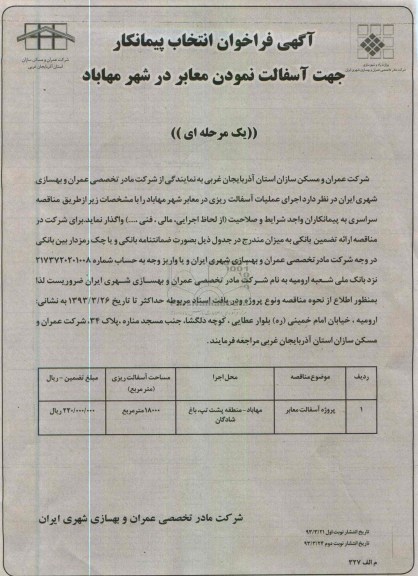 آگهی فراخوان انتخاب پیمانکار
جهت آسفالت نمودن معابر در شهر مهاباد
((یک مرحله ای))
شرکت عمران و مسکن سازان استان آذربایجان غربی به نمایندگی از شرکت مادر تخصصی عمران و بهسازی
شهری ایران در نظر دارد اجرای عملیات آسفالت ریزی در معابر شهر مهاباد را با مشخصات زیر از طریق مناقصه
سراسری به پیمانکاران واجد شرایط و صلاحیت (از لحاظ اجرایی، مالی ، فنی ،...) واگذار نماید.برای شرکت در
مناقصه ارائه تضمین بانکی به میزان مندرج در جدول ذیل بصورت ضمانتنامه بانکی و یا چک رمزدار بین بانکی
در وجه شرکت مادر تخصصی عمران و بهسازی شهری ایران و یا واریز وجه به حساب شماره ۲۱۷۳۷۲۰۲۰۱۰۰۸
نزد بانک ملی شعبه ارومیه به نام شرکت مادر تخصصی عمران و بهسازی شهری ایران ضروریست لذا
بمنظور اطلاع از نحوه مناقصه ونوع پروژه ودریافت اسناد مربوطه حداکثر تا تاریخ ۱۳۹۳/۳/۲۶ به نشانی:
ارومیه ، خیابان امام خمینی (ره) بلوار عطایی ، کوچه دلگشا، جنب مسجد مناره ،پلاک ۳۴، شرکت عمران و
مسکن سازان استان آذربایجان غربی مراجعه فرمایند.
ردیف موضوع مناقصه محل اجرا مساحت آسفالت ریزی (متر مربع) مبلغ تضمین - ریال
۱ پروژه آسفالت معابر مهاباد - منطقه پشت تپ، باغ شادگان ۱۸۰۰۰ مترمربع ۲۲۰/۰۰۰/۰۰۰ ریال
شرکت مادر تخصصی عمران و بهسازی شهری ایران
تاریخ انتشار نوبت اول ۹۳/۳/۲۱
تاریخ انتشار نوبت دوم ۹۳/۳/۲۴
م الف ۳۲۷